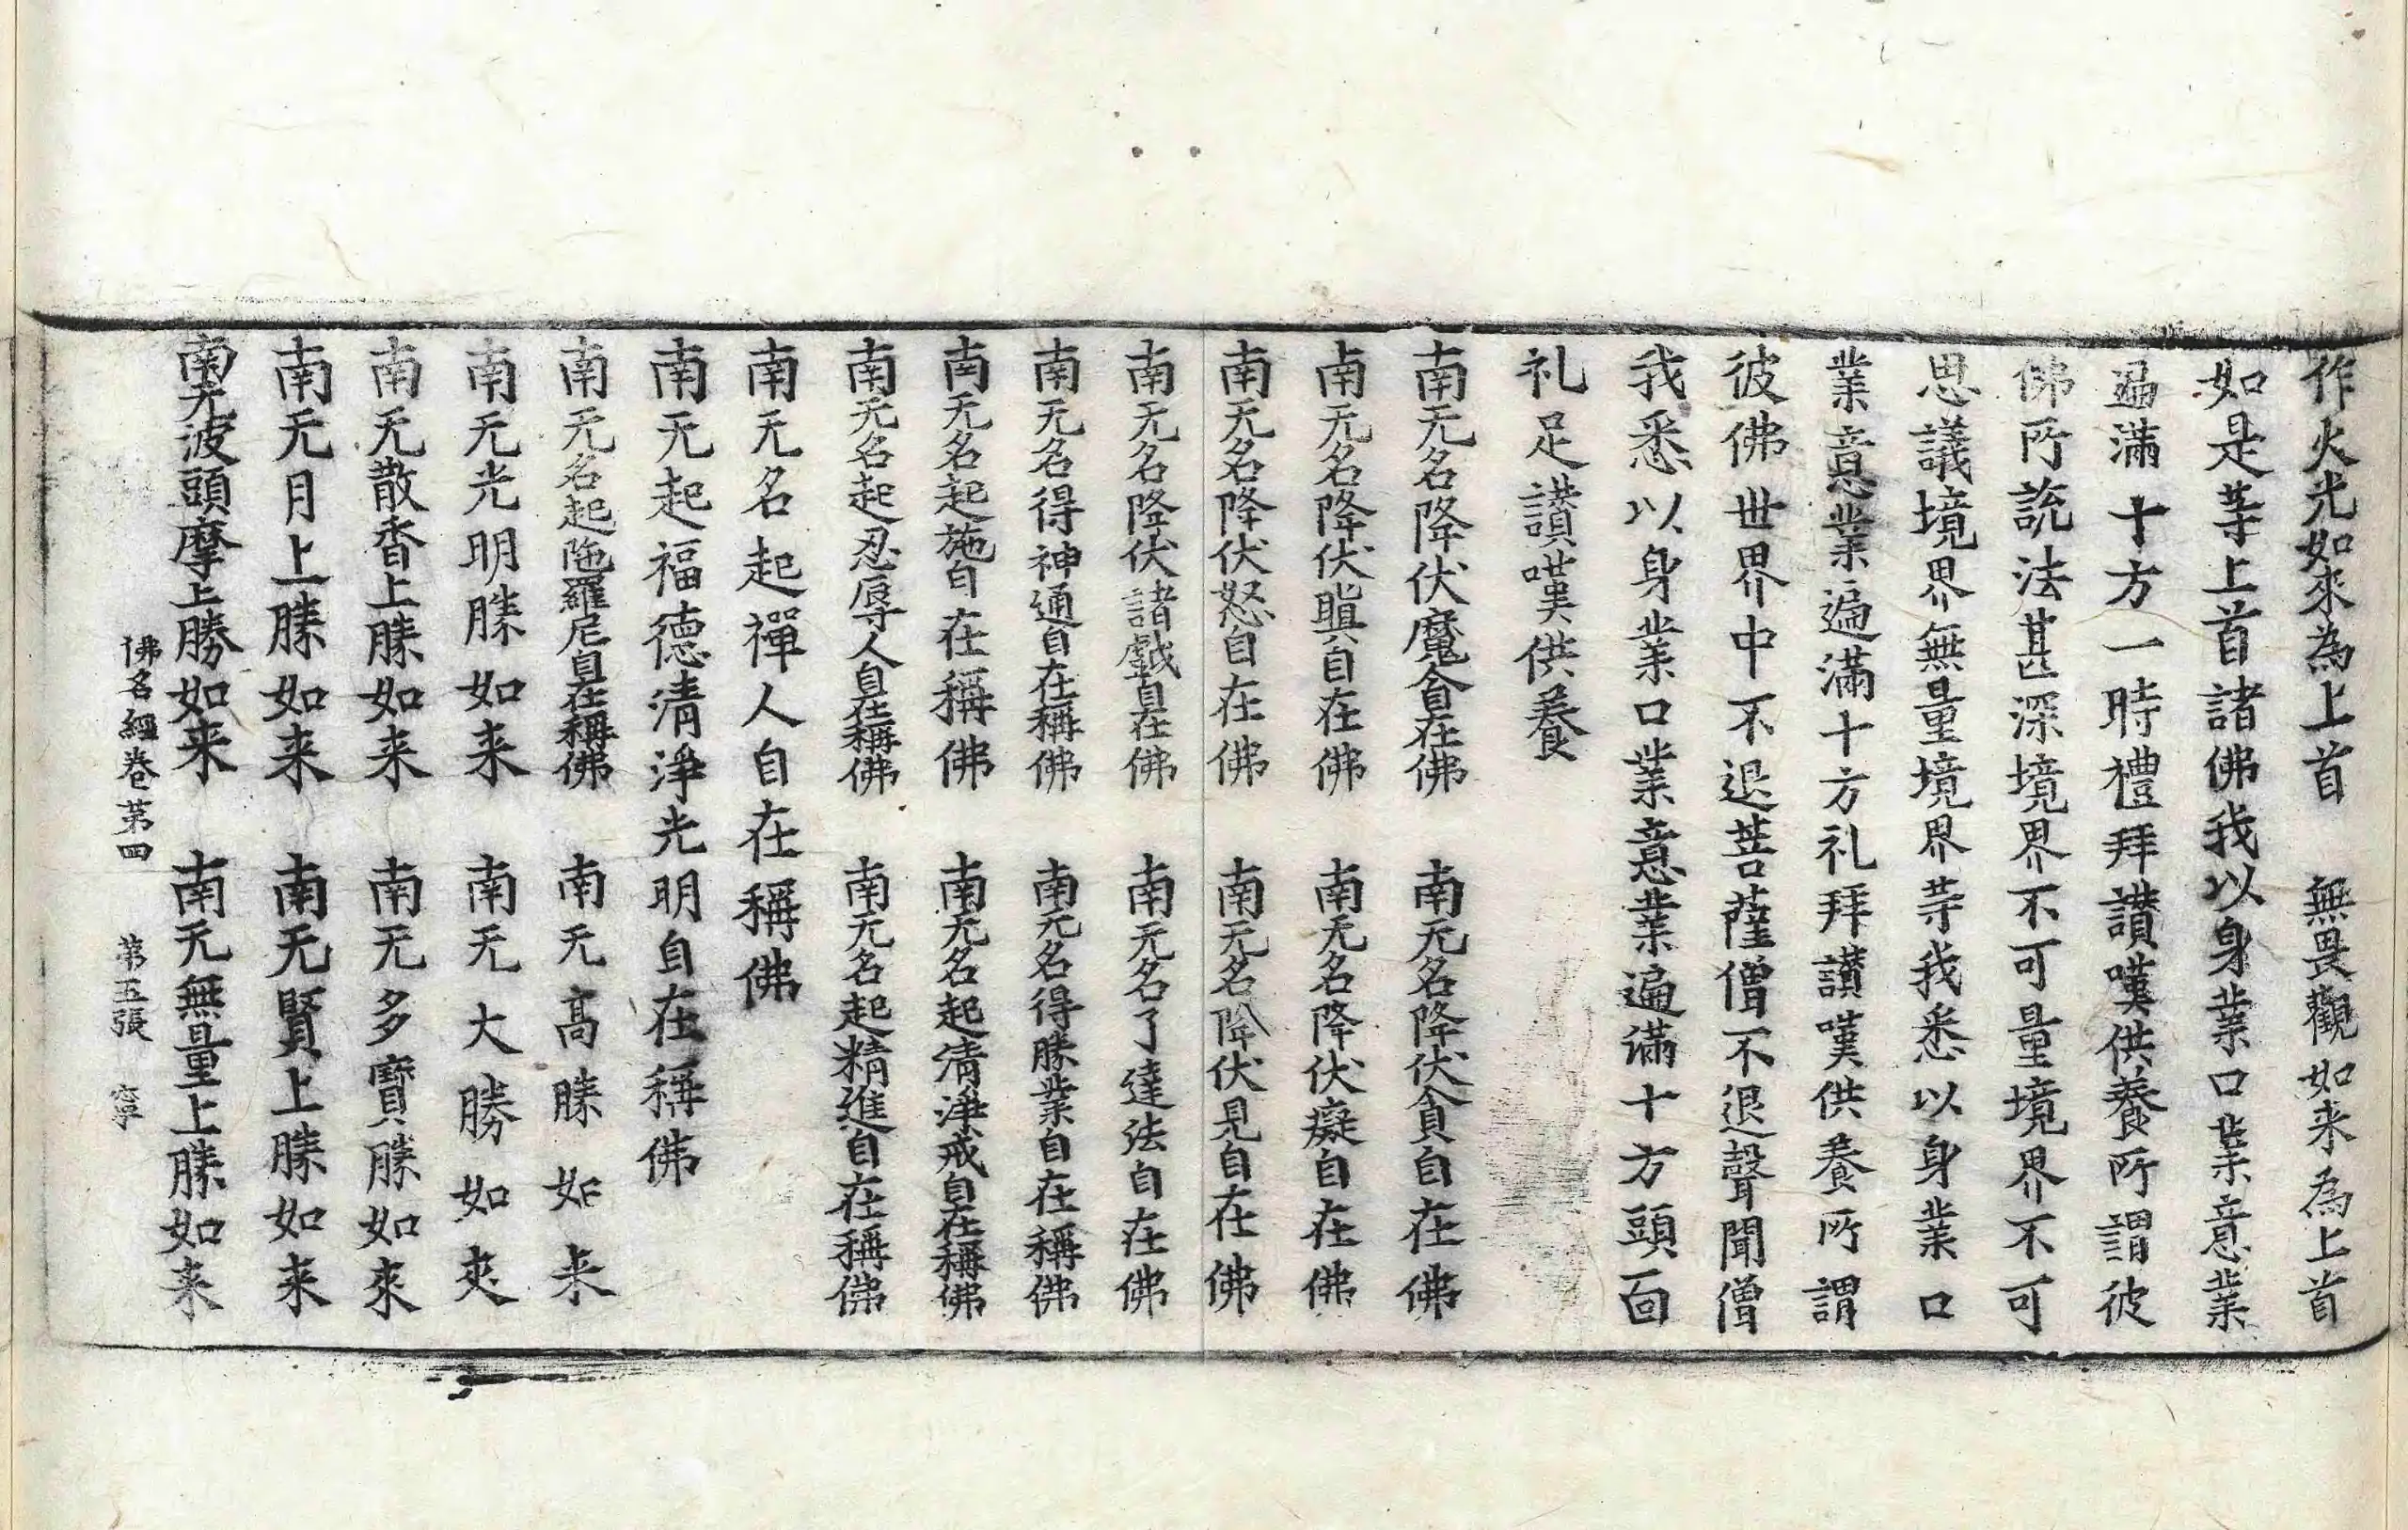 作火光如來為上首　無畏觀如来為上首
如是䓁上首諸佛我以身業口業意業
遍滿十方一時禮拜讃嘆供養所謂彼
佛所說法甚深境界不可量境界不可
思議境界無量境界䓁我悉以身業口
業意業遍滿十方礼拜讃嘆供養所謂
彼佛世界中不退菩薩僧不退聲聞僧
我悉以身業口業意業遍滿十方頭面
礼足讃嘆供養
南无名降伏魔自在佛　南无名降伏貪自在佛
南无名降伏瞋自在佛　南无名降伏癡自在佛
南无名降伏怒自在佛　南无名降伏見自在佛
南无名降伏諸戲自在佛　南无名了達法自在佛
南无名得神通自在稱佛　南无名得勝業自在稱佛
南无名起施自在稱佛　南无名起清淨戒自在稱佛
南无名起忍辱人自在稱佛　南无名起精進自在稱佛
南无名起禪人自在稱佛
南无起福德清淨光明自在稱佛
南无名起陁羅尼自在稱佛　南无高勝如来
南无光明勝如来　南无大勝如来
南无散香上勝如来　南无多寶勝如來
南无月上勝如来　南无賢上勝如来
南无波頭摩上勝如来　南无無量上勝如来
佛名經卷第四　第五張　宁